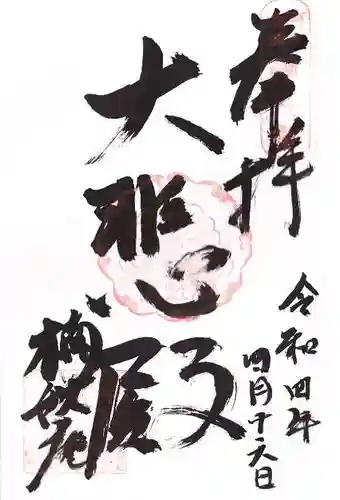 奉拝
令和四年
四月十六日
大悲殿
楠妣庵